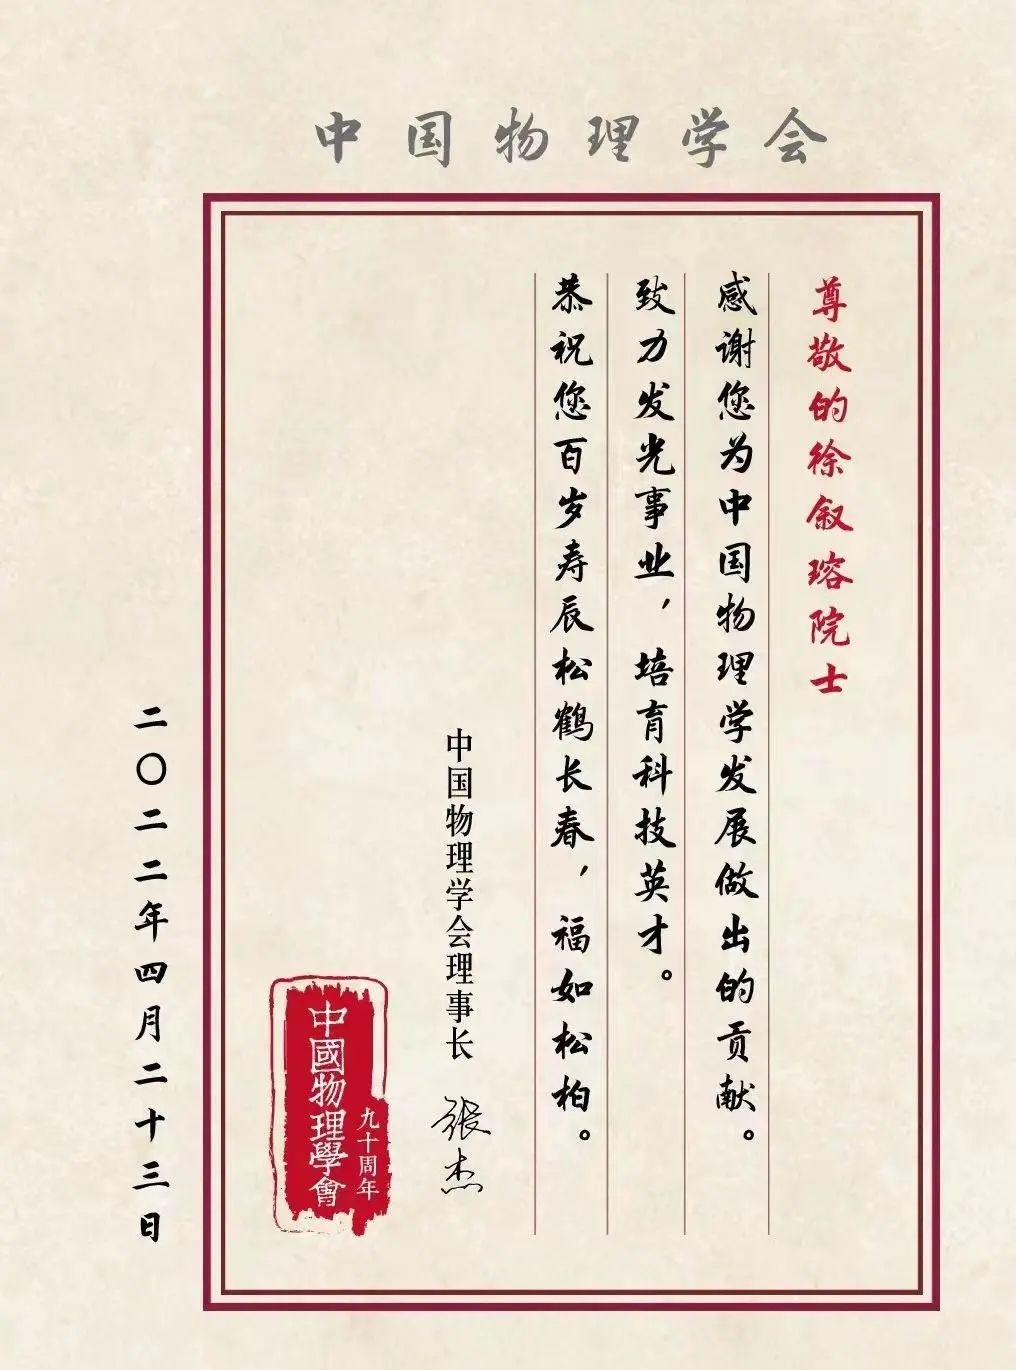 中国物理学会
尊敬的徐叙瑢院士
感谢您为中国物理学发展做出的贡献。
致力发光事业，培育科技英才。
恭祝您百岁寿辰松鹤长春，福如松柏。
中国物理学会理事长 张杰
中國物理學會
九十周年
二〇二二年四月二十三日